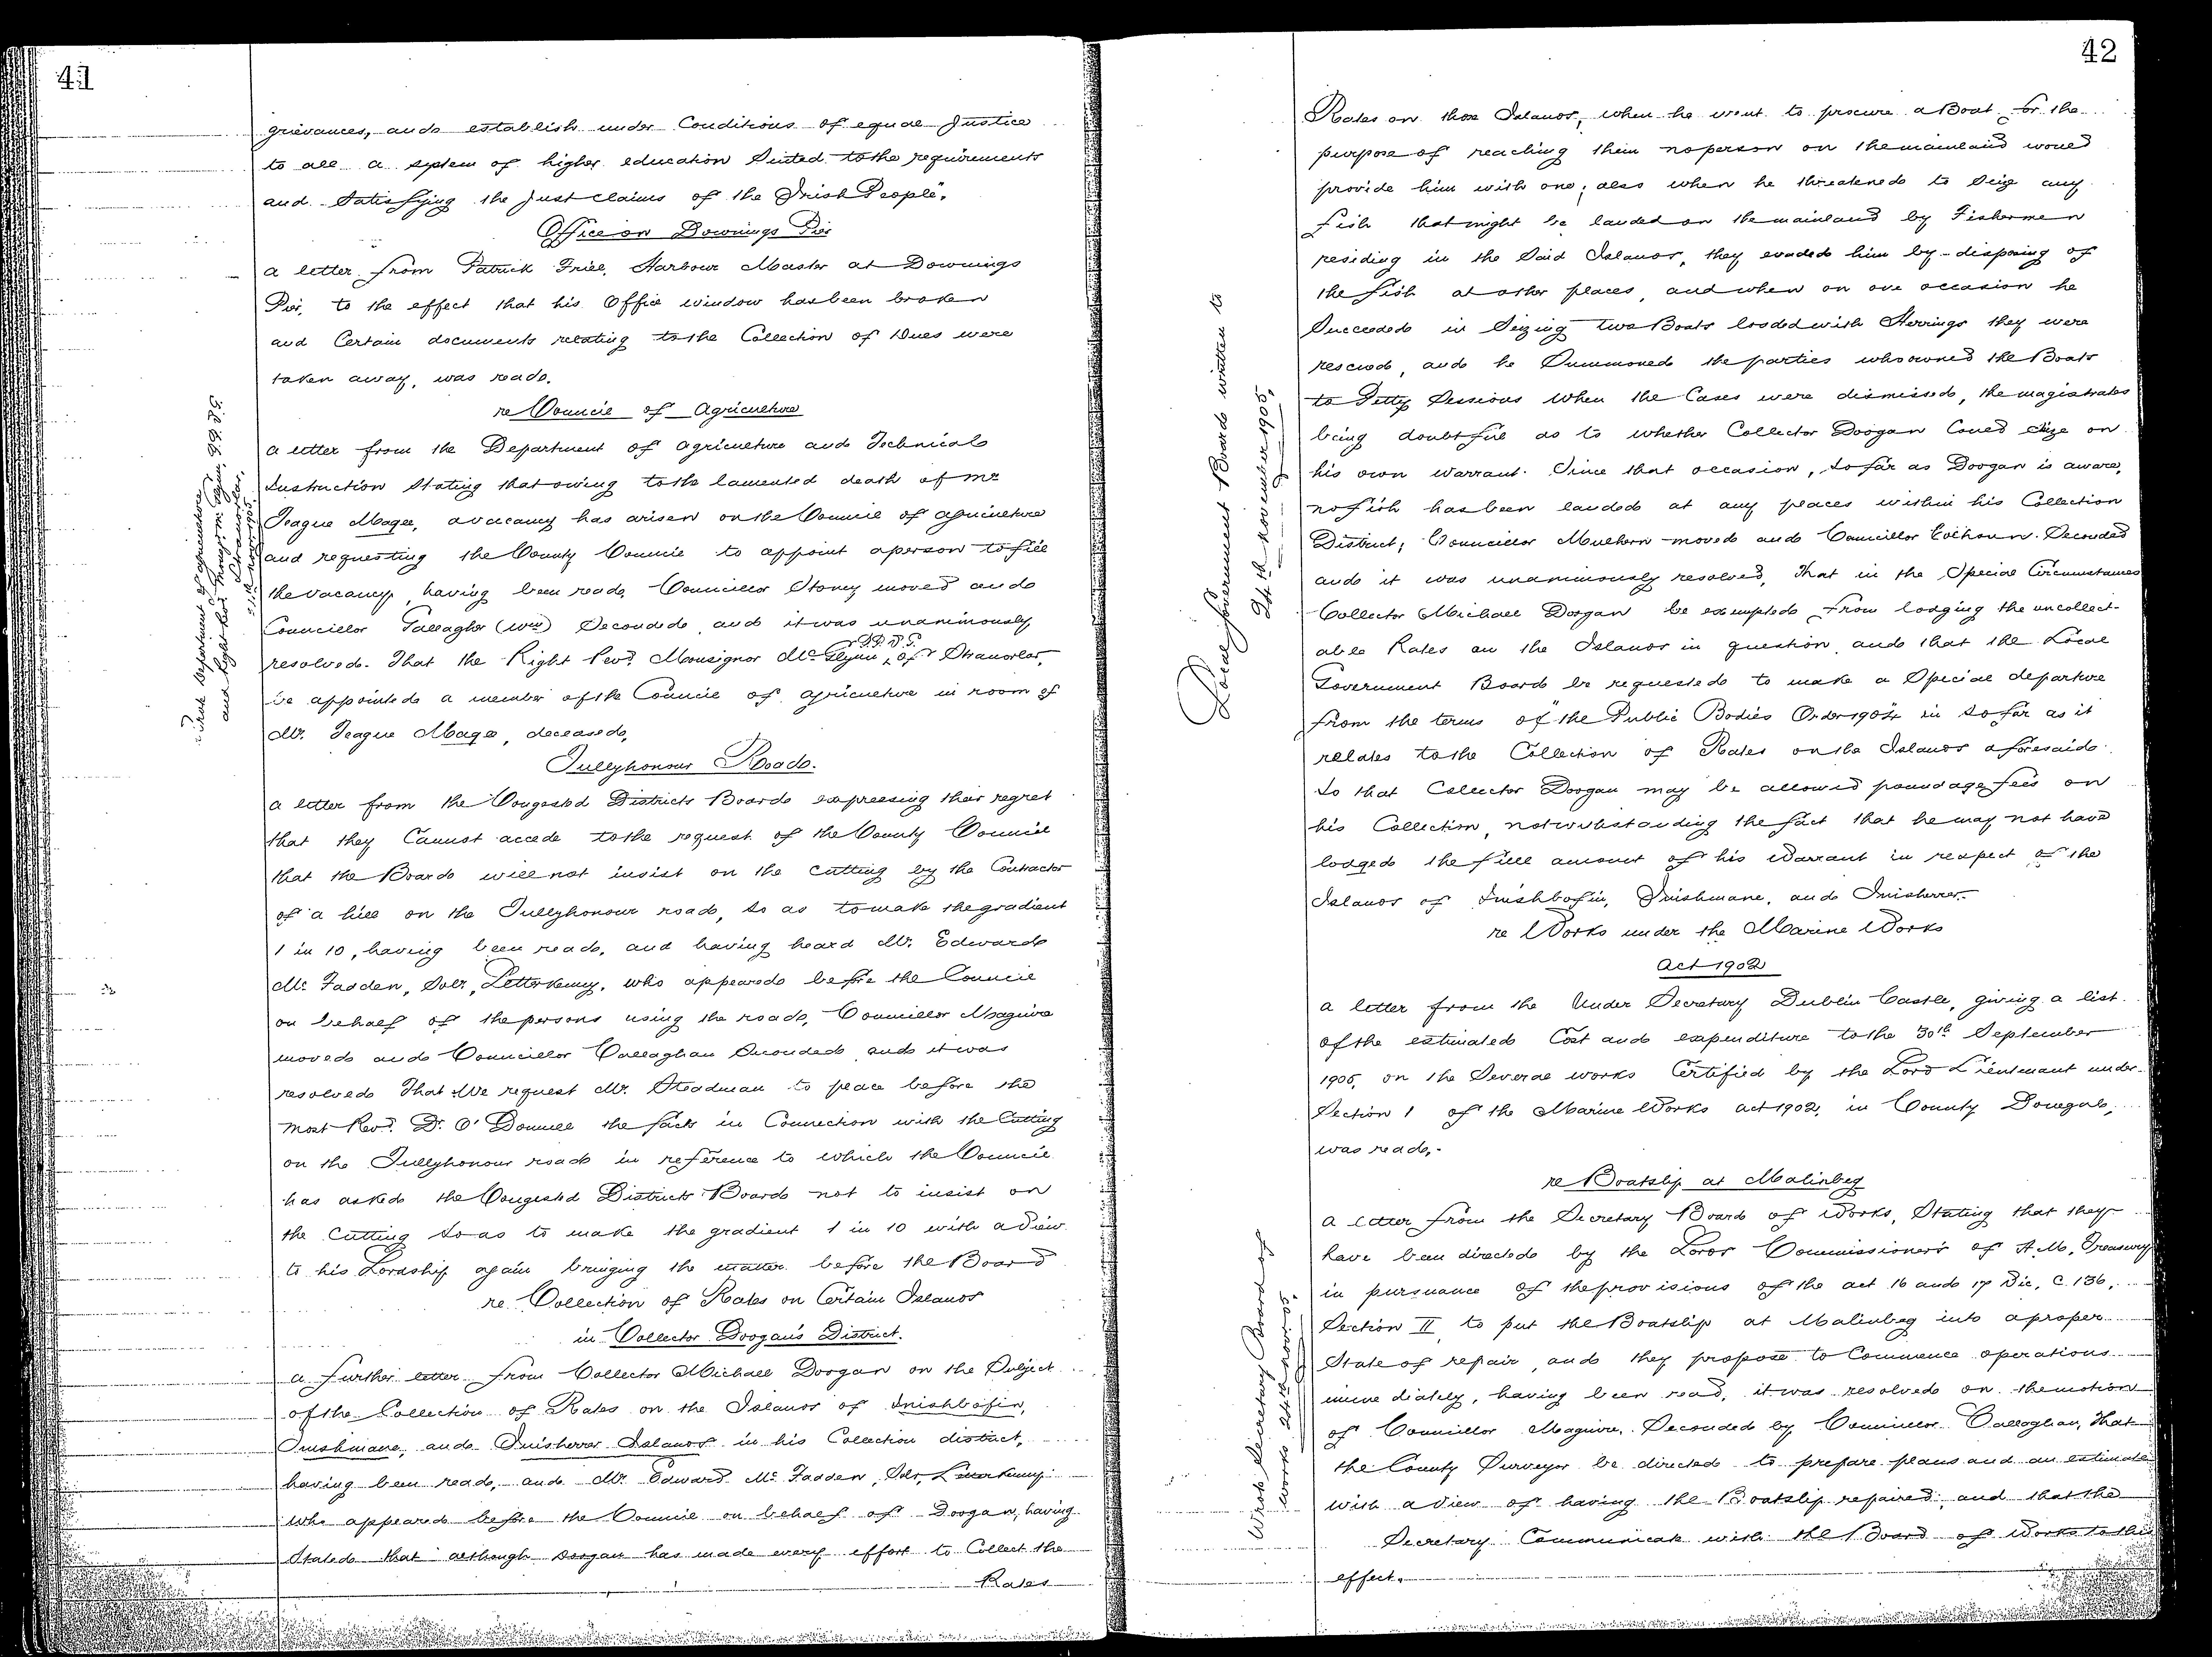 41
grievances, and establish under Conditions of equal Justice
to all a system of higher education Suited to the requirements
and Satisfying the Just claims of the Irish People".
Office on Downings Pier
a letter from Patrick Friel, Harbour Master at Downings
Pier, to the effect that his Office window has been broken
and Certain documents relating to the Collection of Dues were
taken away, was read.
re Council of Agriculture
a letter from the Department of Agriculture and Technical
Instruction Stating that owing to the lamented death of Mr
Teague Magee, a vacancy has arisen on the Council of Agriculture
and requesting the County Council to appoint a person to fill
the vacancy, having been read, Councillor Stoney moved and
Councillor Gallagher (Wm) Seconded and it was unanimously
resolved. That the Right Revd. Monsignor McGlynn, P.P. V.G. of Stranorlar,
be appointed a member of the Council of Agriculture in room of
Mr. Teague Magee, deceased.
Wrote Department of Agriculture
and Right Revd. Monsgr. McGlynn, P.P. V.G.
Stranorlar,
Tullyhonour Road.
a letter from the Congested Districts Board expressing their regret
that they Cannot accede to the request of the County Council
that the Board will not insist on the cutting by the Contractor
of a hill on the Tullyhonour road, so as to make the gradient
1 in 10, having been read, and having heard Mr. Edward
Mc Fadden, Solr, Letterkenny, who appeared before the Council
on behalf of the persons using the road, Councillor Maguire
moved and Councillor Callaghan Seconded and it was
resolved That We request Mr. Steadman to place before the
Most Revd. Dr. O'Donnell the facts in Connection with the Cutting
on the Tullyhonour road in reference to which the Council
has asked the Congested Districts Board not to insist on
the Cutting so as to make the gradient 1 in 10 with a view
to his Lordship again bringing the matter before the Board
re Collection of Rates on Certain Islands
in Collector Doogan's District.
a further letter from Collector Michael Doogan on the Subject
of the Collection of Rates on the Islands of Inishbofin,
Inishmane, and Inisherrer Islands in his Collection district,
having been read, and Mr. Edward Mc Fadden, Solr, Letterkenny
who appeared before the Council on behalf of Doogan, having
Stated that although Doogan has made every effort to Collect the
Rates
42
Rates on those Islands, when he went to procure a Boat for the
purpose of reaching them no person on the mainland would
provide him with one; also when he threatened to Seize any
fish that might be landed on the mainland by Fishermen
residing in the Said Islands, they evaded him by disposing of
the fish at other places, and when on one occasion he
Succeeded in Seizing two Boats loaded with Herrings they were
rescued, and he Summoned the parties who owned the Boats
to Petty Sessions when the Cases were dismissed, the magistrates
being doubtful as to whether Collector Doogan Could Seize on
his own warrant. Since that occasion, so far as Doogan is aware,
no fish has been landed at any places within his Collection
District; Councillor Mulhern moved and Councillor Colhoun Seconded
and it was unanimously resolved, That in the Special Circumstances
Collector Michael Doogan be exempted from lodging the uncollect-
able Rates on the Islands in question and that the Local
Government Board be requested to make a Special departure
from the terms of "the Public Bodies Order 1904 in so far as it
relates to the Collection of Rates on the Islands aforesaid
so that Collector Doogan may be allowed poundage fees on
his Collection, notwithstanding the fact that he may not have
lodged the full amount of his Warrant in respect of the
Islands of Inishbofin, Inishmane, and Inisherrer.
Local Government Board written to
24th November 1905,
re Works under the Marine Works
Act 1902
a letter from the Under Secretary Dublin Castle, giving a list
of the estimated Cost and expenditure to the 30th September
1905, on the Several works Certified by the Lord Lieutenant under
Section 1 of the Marine Works act 1902, in County Donegal,
was read.
re Boatslip at Malinbeg
a letter from the Secretary Board of Works, Stating that they
have been directed by the Lords Commissioners of H.M. Treasury
in pursuance of the provisions of the act 16 and 17 Vic, C. 136,
Section II, to put the Boatslip at Malinbeg into a proper
State of repair, and they propose to Commence operations
immediately, having been read, it was resolved on the motion
of Councillor Maguire, Seconded by Councillor Callaghan, That
the County Surveyor be directed to prepare plans and an estimate
with a view of having the Boatslip repaired, and that the
Secretary Communicate with the Board of Works to this
effect.
Wrote Secretary Board of
Works 24th Nov. 05.